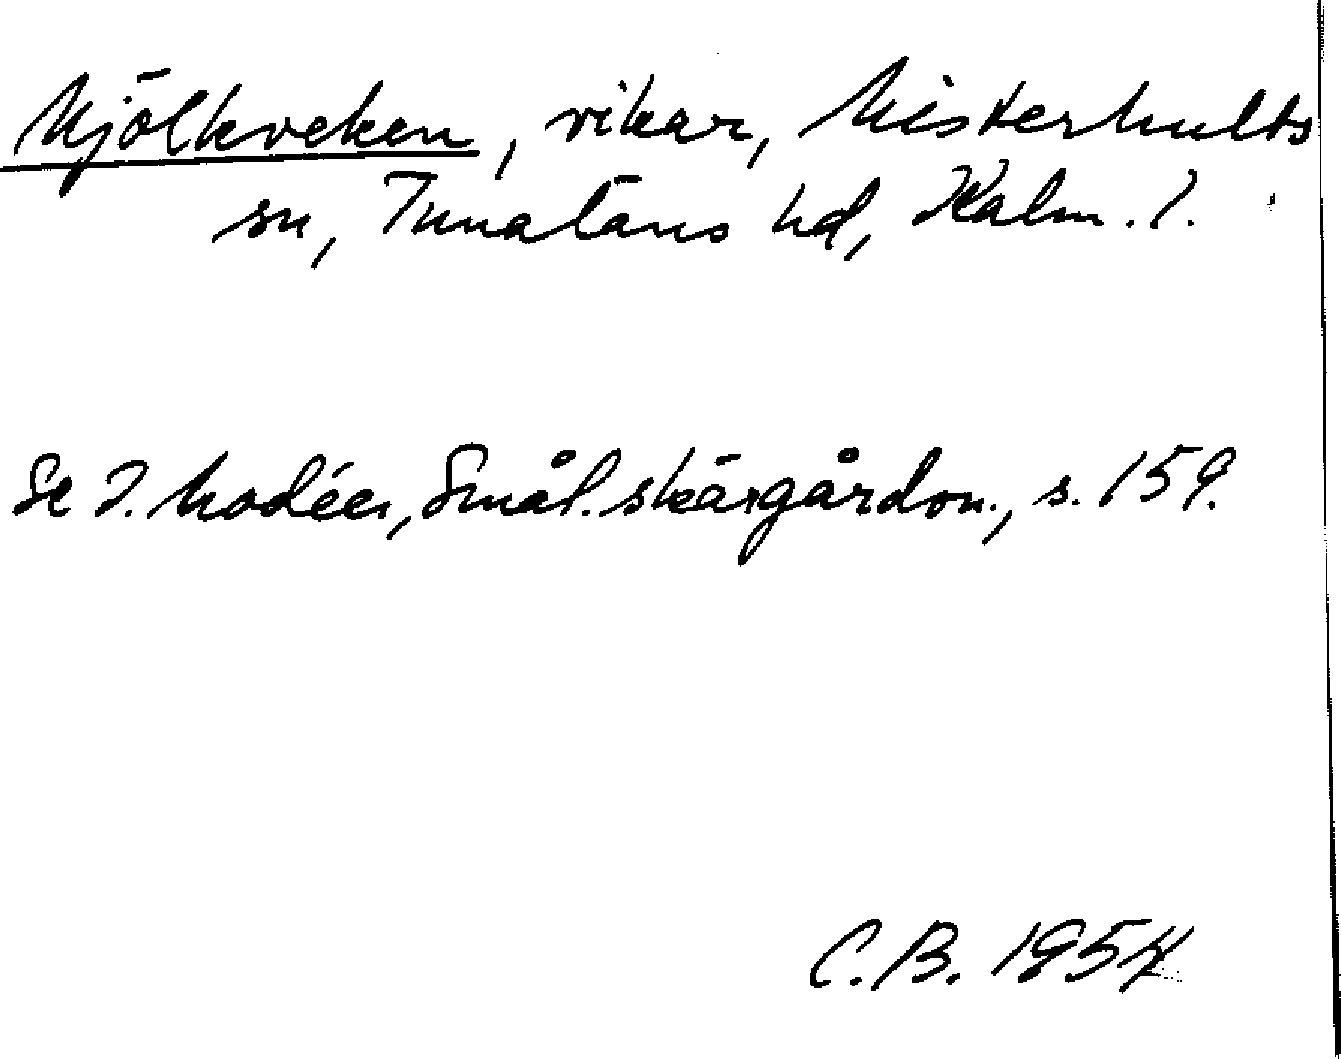 Mjölkveken, vikar, Misterhults
sn, Tunaläns hd, Kalm. l.
Se I. Modéer, Smål. skärgårdsn., s. 159.
C.B. 1954